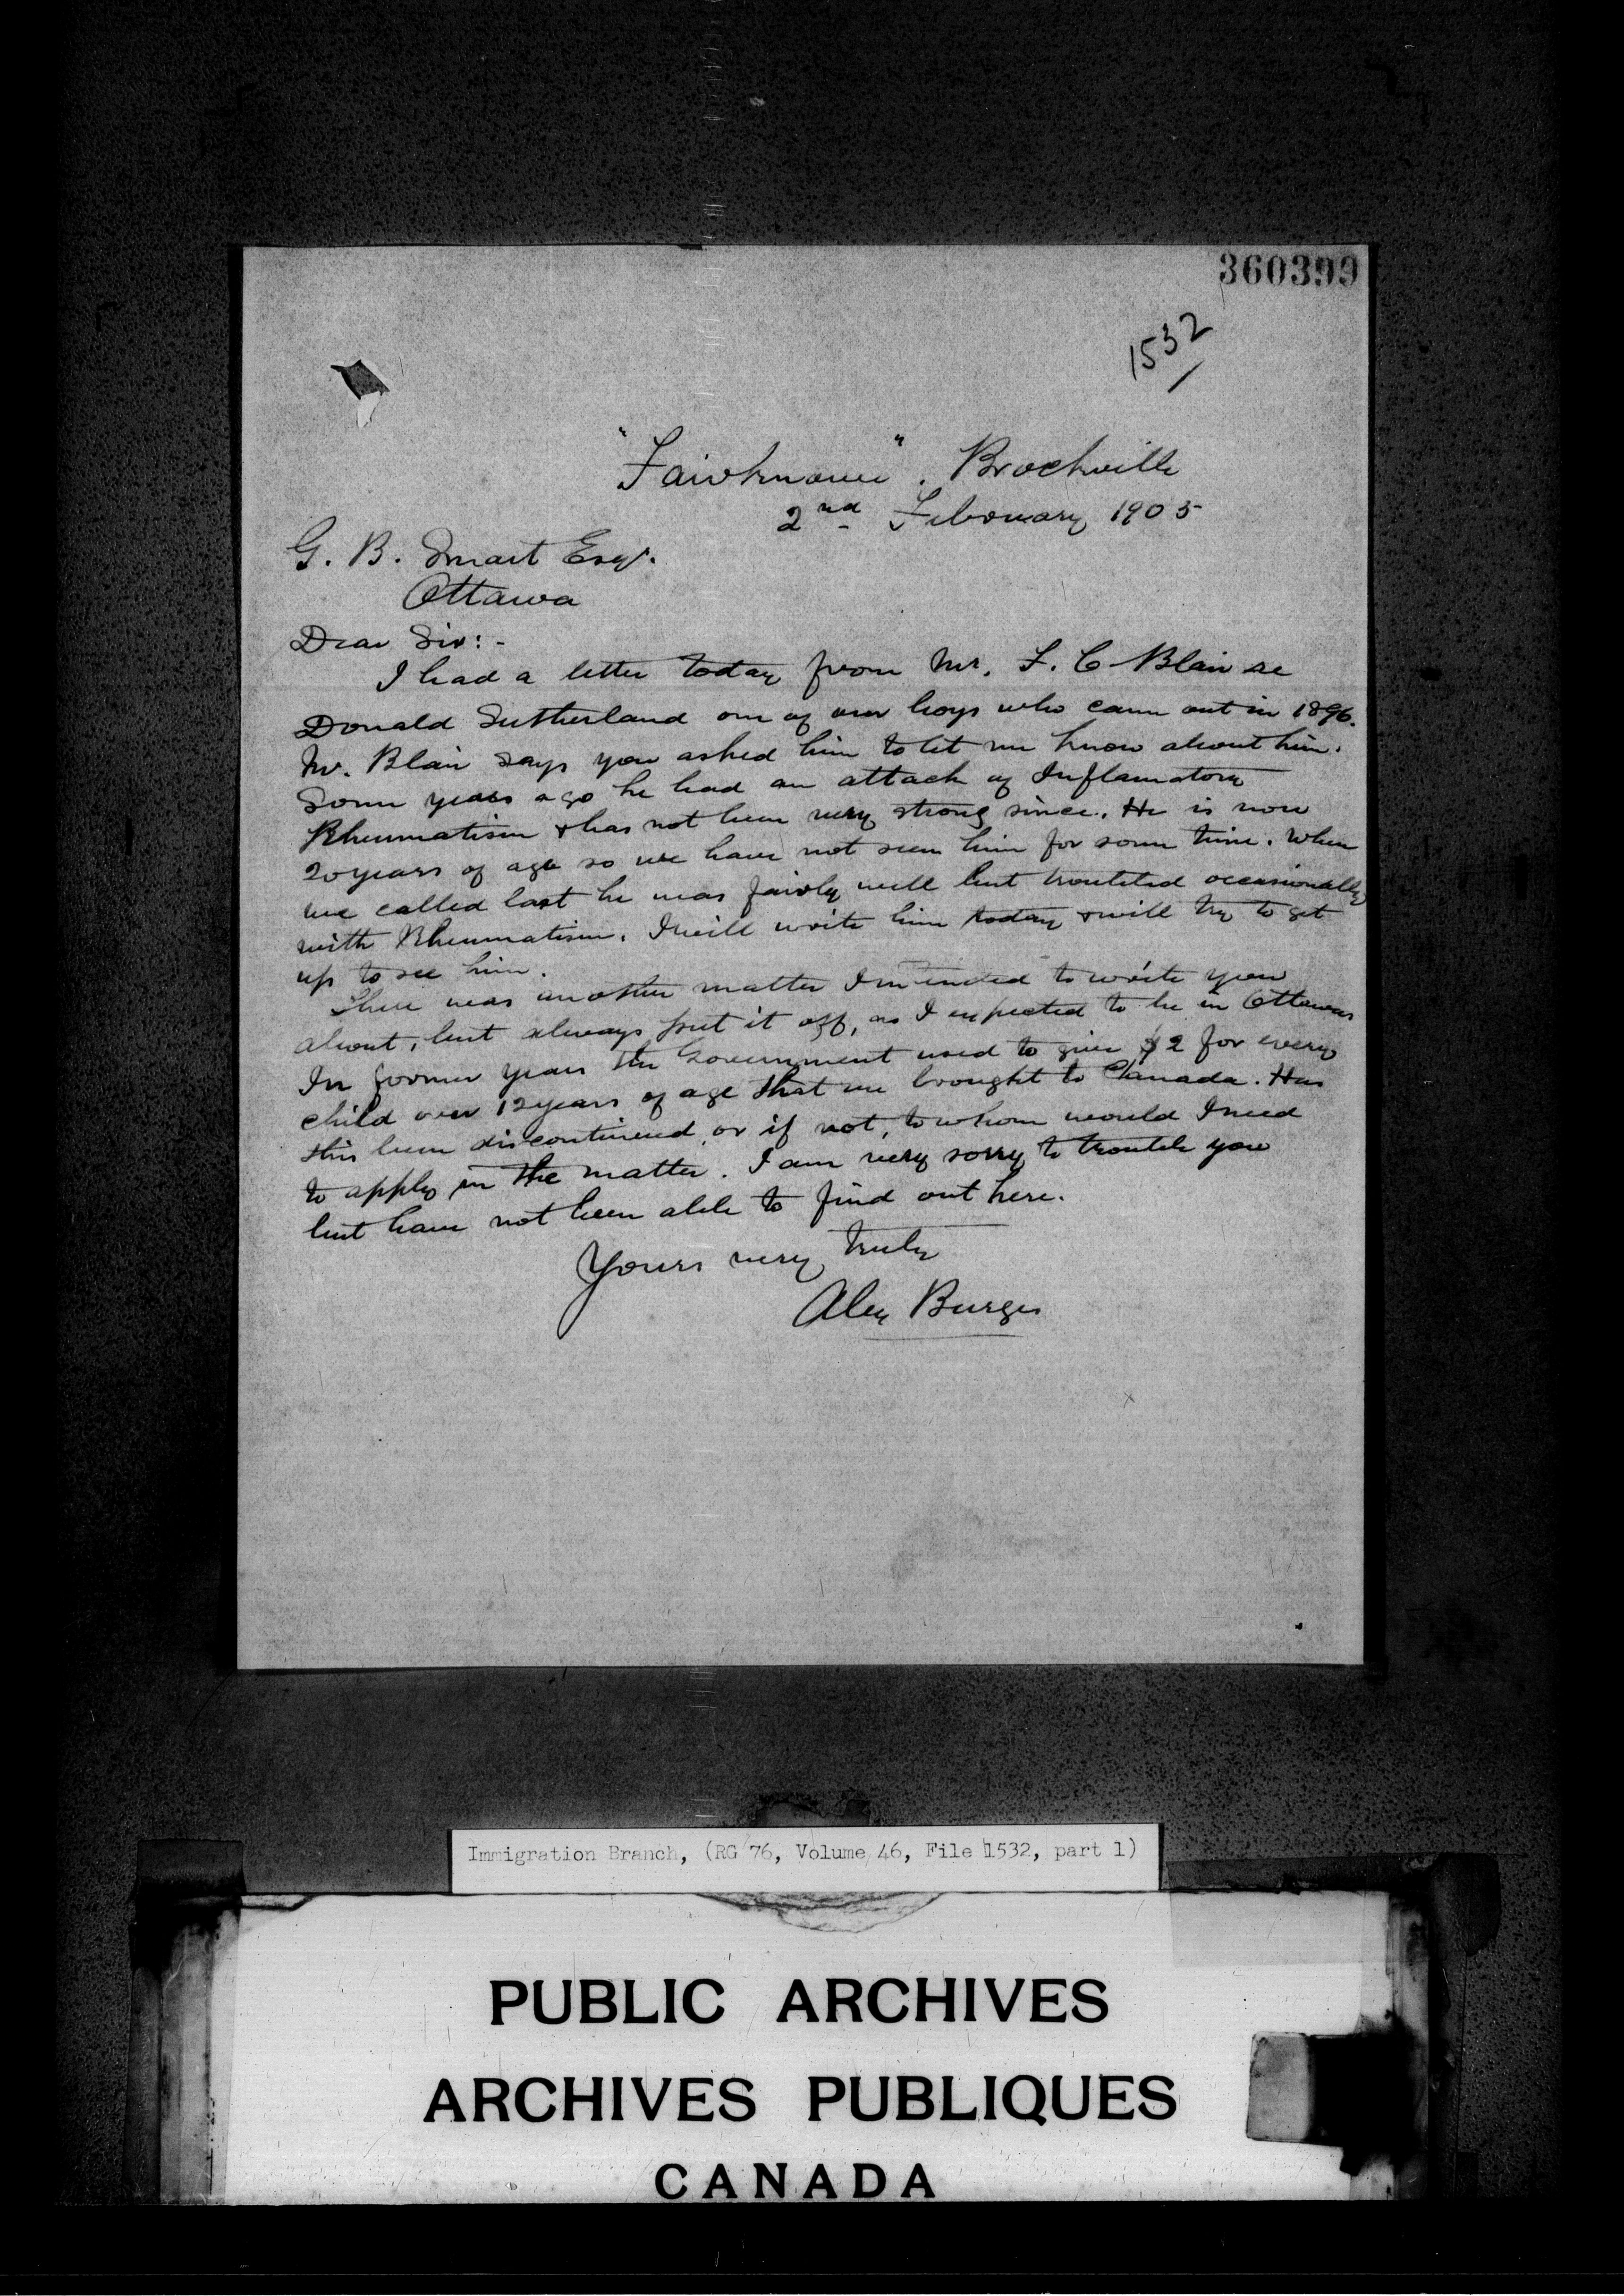 360399
1532
"Fairknowe". Brockville
2nd February 1905
G. B. Smart Esq.
Ottawa
Dear Sir:-
I had a letter today from Mr. F. C Blair re
Donald Sutherland one of our boys who came out in 1896.
Mr. Blair says you asked him to let me know about him.
Some years ago he had an attack of Inflamatory
Rheumatism & has not been very strong since. He is now
20 years of age so we have not seen him for some time. When
we called last he was fairly well but troubled occasionally
with Rheumatism. I will write him today & will try to get
up to see him.
There was another matter I intended to write you
about, but always put it off, as I expected to be in Ottawa
In former years the Government used to give $2 for every
child over 12 years of age that we brought to Canada. Has
this been discontinued, or if not, to whom would I need
to apply in the matter. I am very sorry to trouble you
but have not been able to find out here.
Yours very truly
Alex Burges
Immigration Branch, (RG 76, Volume 46, File 1532, part 1)
PUBLIC ARCHIVES
ARCHIVES PUBLIQUES
CANADA